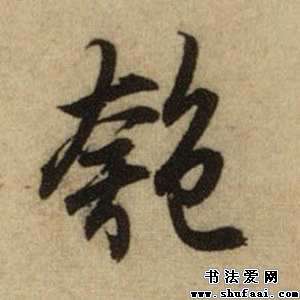 匏
书法爱网
www.shufaai.com